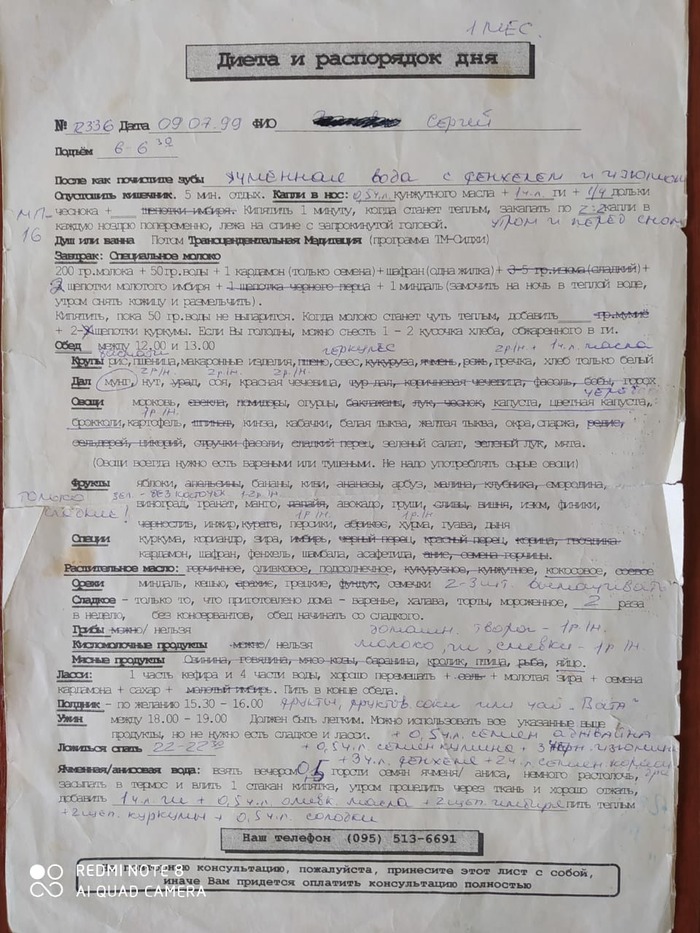 1 мес.
Диета и распорядок дня
№ R336 Дата 09 07.99 ФИО Сергей
Подъём 6-6 30
После как почистите зубы Ячменная вода с фенхелем и изюмом
Опустошить кишечник. 5 мин. отдых. Капли в нос: 0,5 ч.л. кунжутного масла + 1 ч.л. ги + 1/4 дольки
чеснока + щепотки имбиря. Кипятить 1 минуту, когда станет теплым, закапать по 2-2 капли в
каждую ноздрю попеременно, лежа на спине с запрокинутой головой. утром и перед сном
МП-16
Душ или ванна Потом Трансцендентальная Медитация (программа ТМ-Сидхи)
Завтрак: Специальное молоко
200 гр.молока + 50 гр.воды + 1 кардамон (только семена) + шафран (одна жилка) + 3-5 гр.изюма (сладкий) +
2 щепотки молотого имбиря + 1 щепотка черного перца + 1 миндаль (замочить на ночь в теплой воде,
утром снять кожицу и размельчить).
Кипятить, пока 50 гр.воды не выпарится. Когда молоко станет чуть теплым, добавить гр.мумиё
+ 2- щепотки куркумы. Если Вы голодны, можно съесть 1 - 2 кусочка хлеба, обжаренного в ги.
Обед между 12.00 и 13.00
басмати геркулес 2р/н. + 1 ч.л. масла
Крупы рис, пшеница, макаронные изделия, пшено, овес, кукуруза, ячмень, рожь, гречка, хлеб только белый
2р/н. 2р/н. 2р/н.
Дал мунг, нут, урад, соя, красная чечевица, чур дал, коричневая чечевица, фасоль, бобы, горох
Овощи морковь, свекла, помидоры, огурцы, баклажаны, лук, чеснок, капуста, цветная капуста,
1р/н.
брокколи, картофель, шпинат, кинза, кабачки, белая тыква, желтая тыква, окра, спаржа, редис,
сельдерей, цикорий, стручки фасоли, сладкий перец, зеленый салат, зеленый лук, мята.
(Овощи всегда нужно есть вареными или тушеными. Не надо употреблять сырые овощи)
Фрукты яблоки, апельсины, бананы, киви, ананасы, арбуз, малина, клубника, смородина,
только сладкие! зел. - без косточек 1-2р./н.
виноград, гранат, манго, папайя, авокадо, груши, сливы, вишня, изюм, финики,
1р/н. 1р/н.
чернослив, инжир, курага, персики, абрикос, хурма, гуава, дыня
Специи куркума, кориандр, зира, имбирь, черный перец, красный перец, корица, гвоздика
кардамон, шафран, фенхель, шамбала, асафетида, анис, семена горчицы.
Растительное масло: горчичное, оливковое, подсолнечное, кукурузное, кунжутное, кокосовое, соевое
Орехи миндаль, кешью, арахис, грецкие, фундук, семечки 2-3 шт. вымачивать
Сладкое - только то, что приготовлено дома - варенье, халава, торты, мороженное, 2 раза
в неделю, без консервантов, обед начинать со сладкого.
Грибы можно/ нельзя домашн. творог - 1р/н.
Кисломолочные продукты можно/ нельзя молоко, ги, сливки - 1р/н
Мясные продукты Свинина, говядина, мясо козы, баранина, кролик, птица, рыба, яйцо.
Ласси: 1 часть кефира и 4 части воды, хорошо перемешать + соль + молотая зира + семена
кардамона + сахар + молотый имбирь. Пить в конце обеда.
Полдник - по желанию 15.30 - 16.00 фрукты, фруктов. соки или чай "Вата"
Ужин между 18.00 - 19.00 Должен быть легким. Можно использовать все указанные выше
продукты, но не нужно есть сладкое и ласси. + 0,5 ч.л. семен ажвайна
Ложиться спать 22-22 30 + 0,5 ч.л. семен кумина + 3 черн. изюмин
+ 3/4 фенхеля + 2 ч.л. семен
Ячменная/анисовая вода: взять вечером 0,5 горсти семян ячменя/ аниса, немного растолочь,
засыпать в термос и влить 1 стакан кипятка, утром процедить через ткань и хорошо отжать,
добавить 1 ч.л. ги + 0,5 ч.л. оливк. масла + 2 щеп. имбиря пить теплым
+ 2 щеп. куркумы + 0,5 ч.л. солодки
Наш телефон (095) 513-6691
консультацию, пожалуйста, принесите этот лист с собой,
иначе Вам придется оплатить консультацию полностью
REDMI NOTE 8
AI QUAD CAMERA